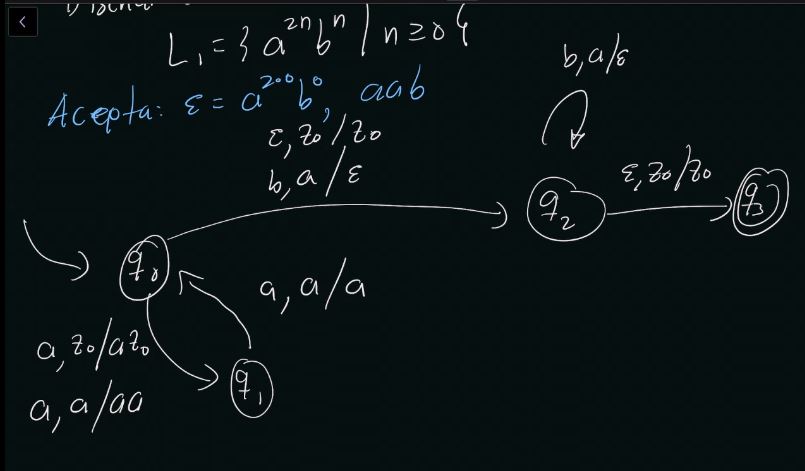 L₁ = { a²ⁿ bⁿ | n ≥ 0 }
Acepta: ε = a²°⁰ b⁰, aab
b, a/ε
ε, z₀/z₀
b, a/ε
ε, z₀/z₀
q₂
q₃
q₀
a, a/a
a, z₀/az₀
a, a/aa
q₁